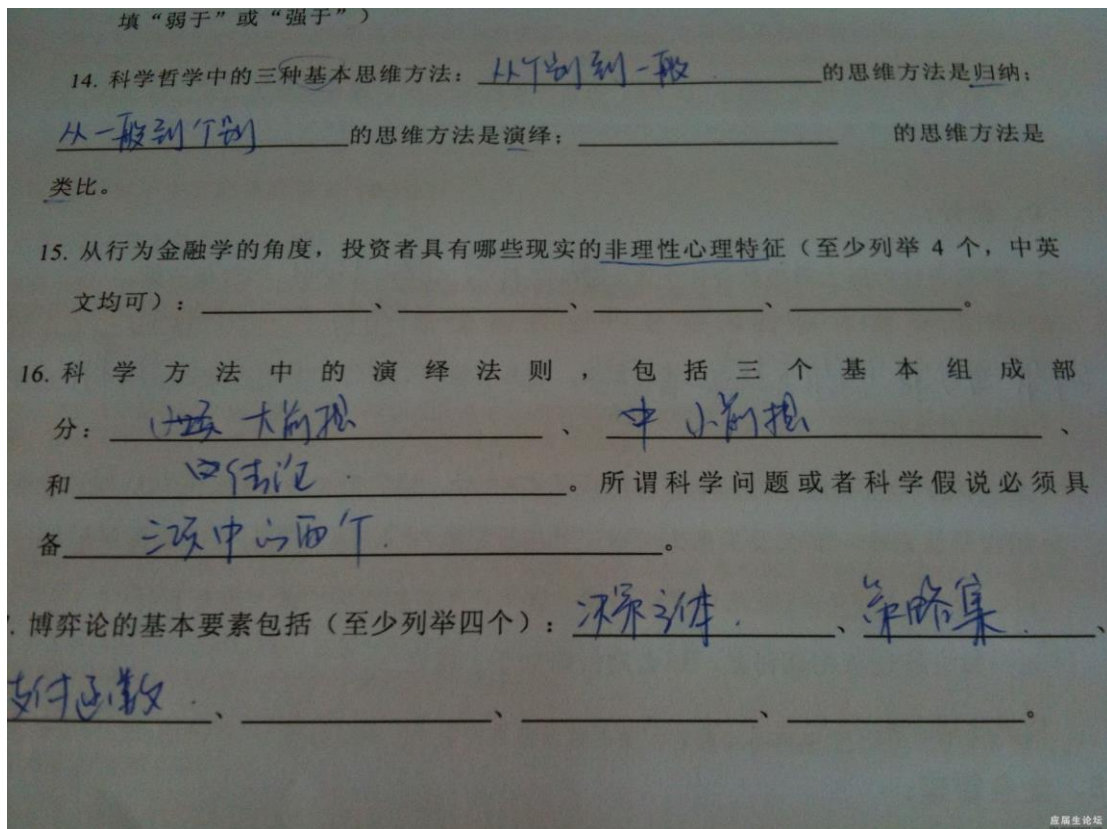 填“弱于”或“强于”）
14. 科学哲学中的三种基本思维方法：从个别到一般的思维方法是归纳；
从一般到个别的思维方法是演绎；____的思维方法是
类比。
15. 从行为金融学的角度，投资者具有哪些现实的非理性心理特征（至少列举 4 个，中英
文均可）：____、____、____、____。
16. 科学方法中的演绎法则，包括三个基本组成部
分：大前提、小前提、
和结论。所谓科学问题或者科学假说必须具
备三项中的两个。
. 博弈论的基本要素包括（至少列举四个）：决策主体、策略集、
支付函数、____、____、____。
应届生论坛